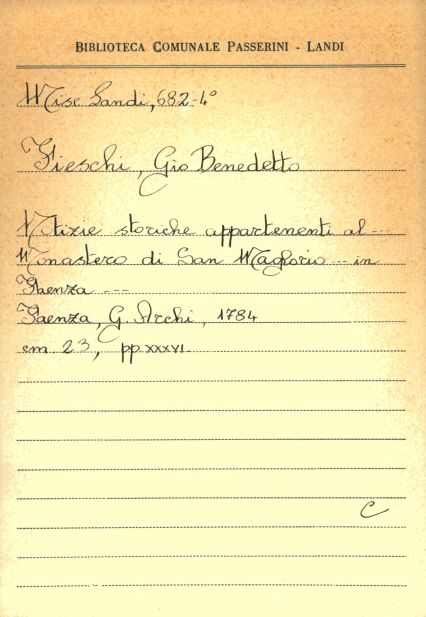 BIBLIOTECA COMUNALE PASSERINI - LANDI
Misc Landi, 682-4°
Fieschi, Gio Benedetto
Notizie storiche appartenenti al ---
Monastero di San Maglorio --- in
Faenza ---
Faenza, G. Archi, 1784
cm 23, pp. XXXVI.
C